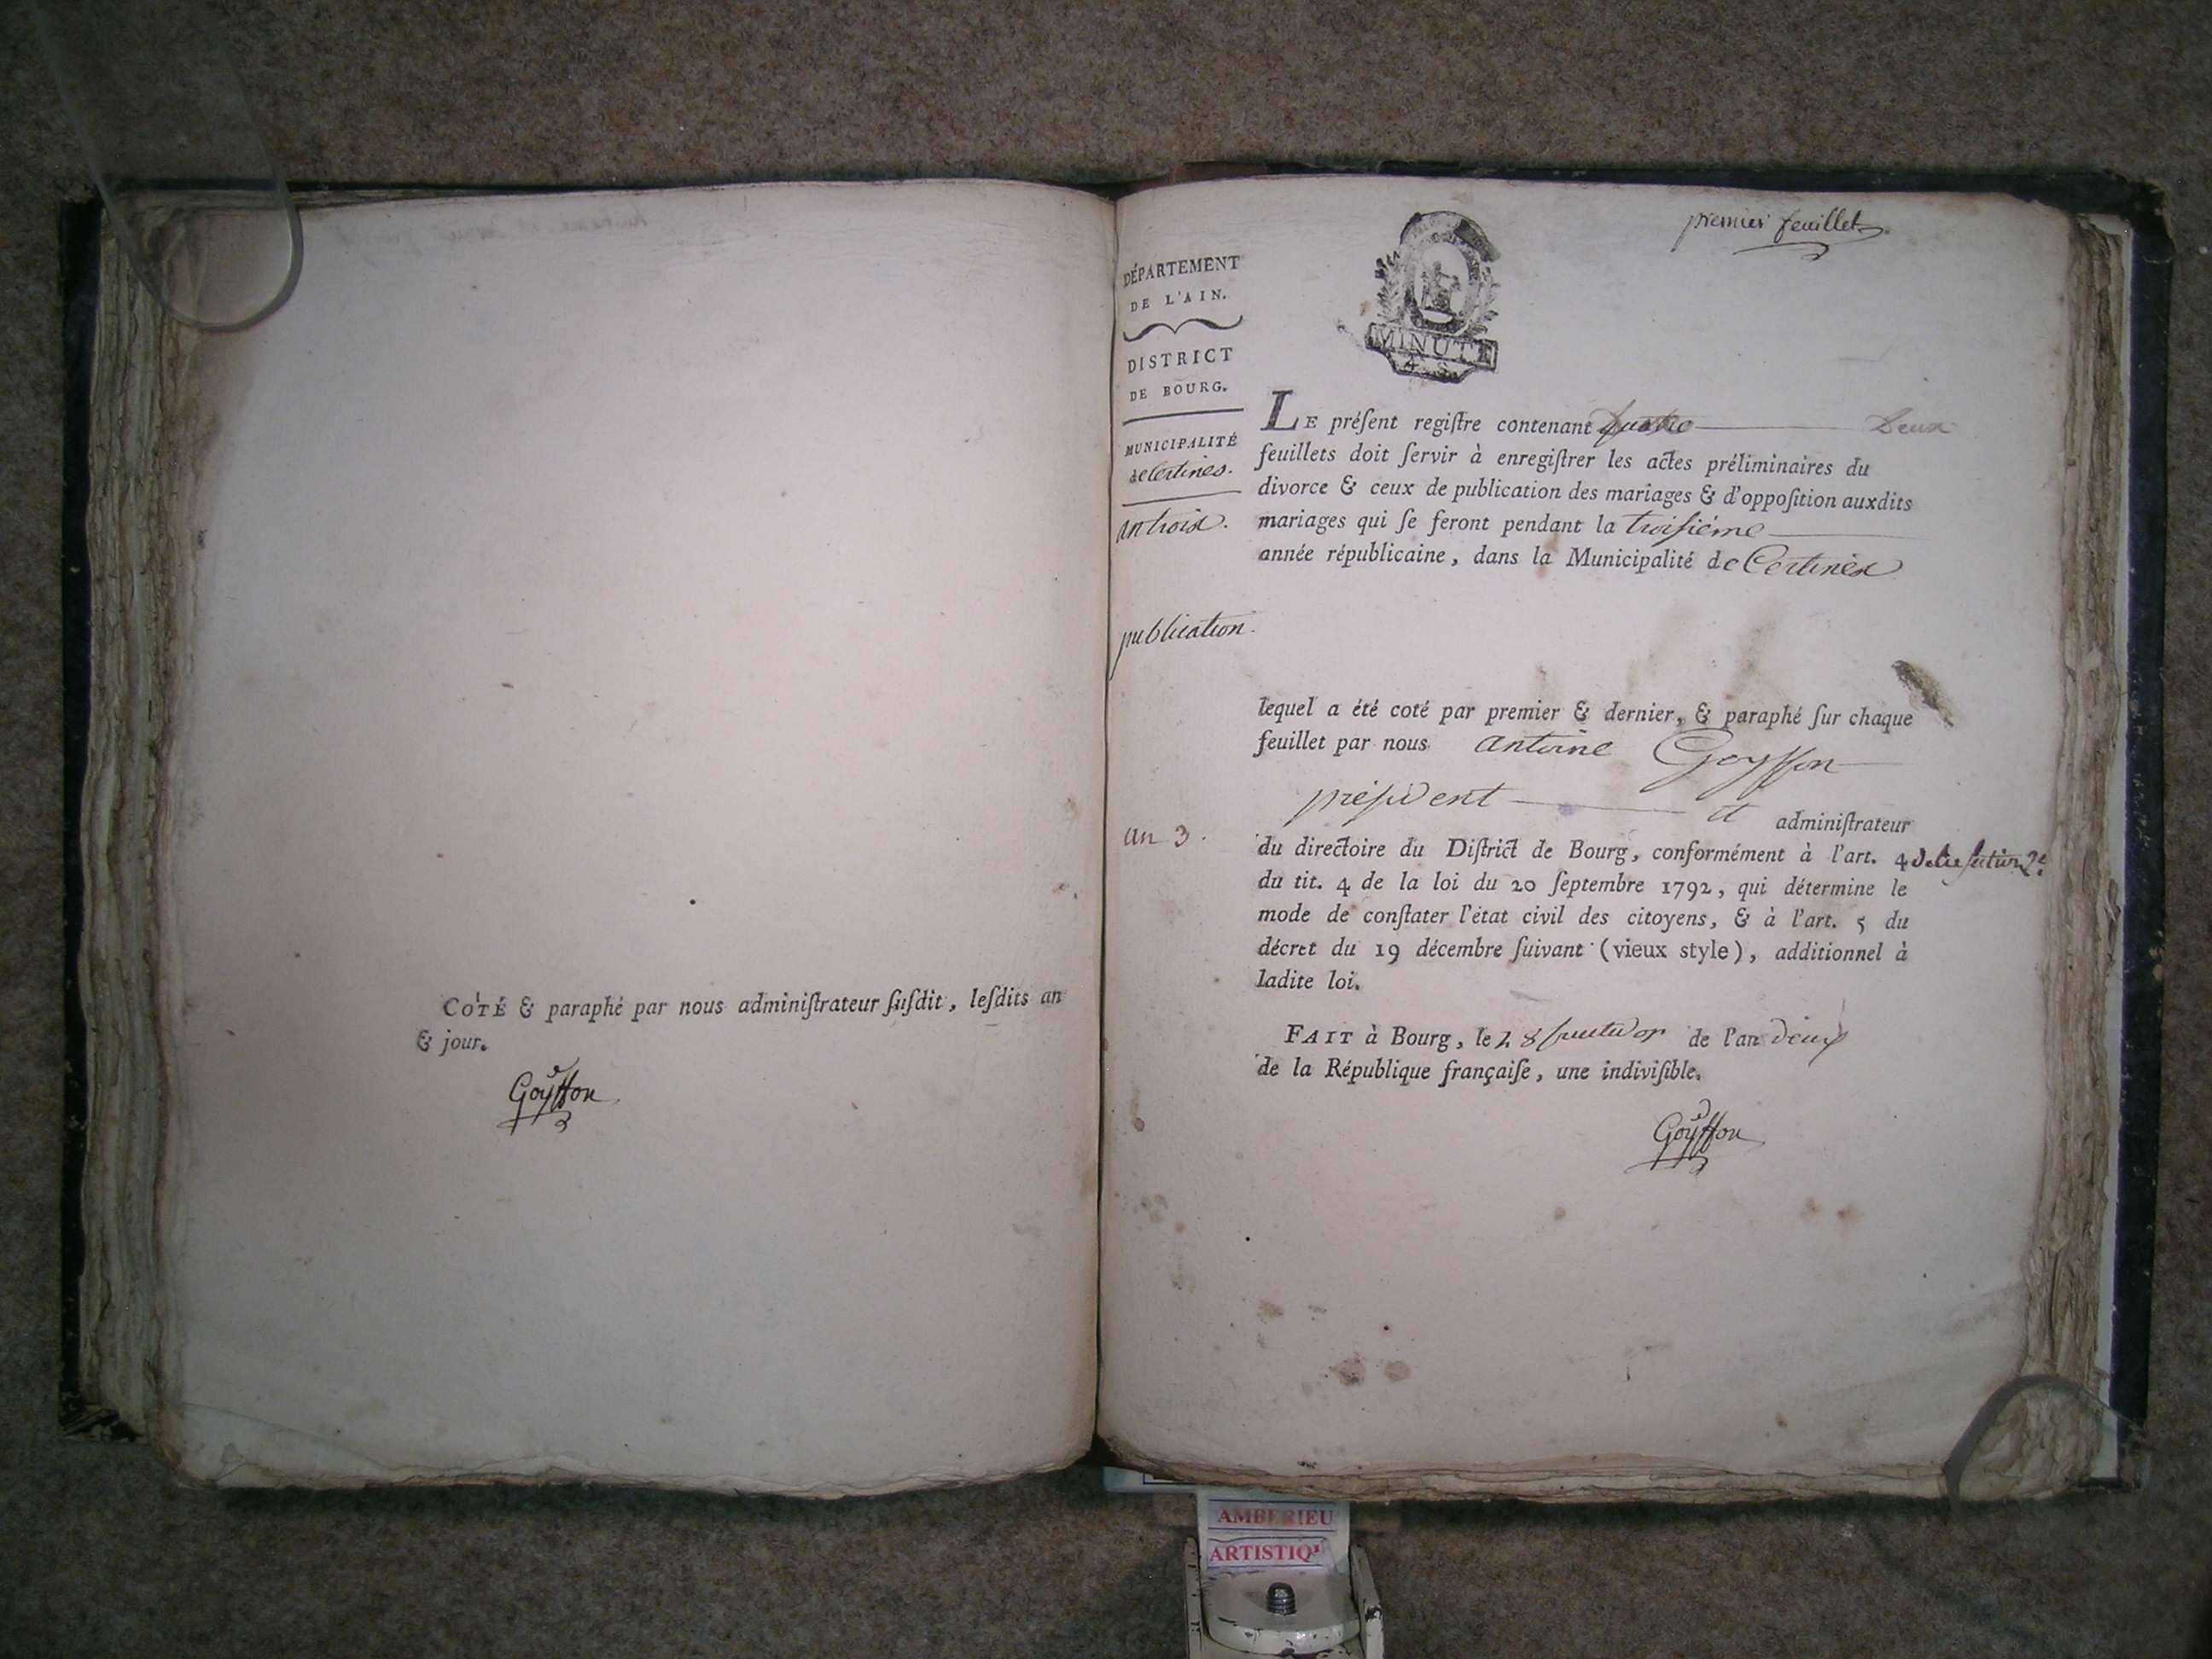 COTÉ & paraphé par nous adminiſtrateur ſuſdit, leſdits an
& jour.
Goÿffon
premier feuillet
DÉPARTEMENT
DE L'AIN.
DISTRICT
DE BOURG.
MUNICIPALITÉ
de Certines.
an trois.
publication.
an 3.
MINUTE
4. S.
LE préſent regiſtre contenant quatre Deux
feuillets doit ſervir à enregiſtrer les actes préliminaires du
divorce & ceux de publication des mariages & d'oppoſition auxdits
mariages qui ſe feront pendant la troiſiéme
année républicaine, dans la Municipalité de Certines
lequel a été coté par premier & dernier, & paraphé ſur chaque
feuillet par nous antoine Goyffon
préſident et adminiſtrateur
du directoire du Diſtrict de Bourg, conformément à l'art. 4 de la ſection 2e
du tit. 4 de la loi du 20 ſeptembre 1792, qui détermine le
mode de conſtater l'état civil des citoyens, & à l'art. 5 du
décret du 19 décembre ſuivant (vieux style), additionnel à
ladite loi.
FAIT à Bourg, le 28 fructidor de l'an deux
de la République françaiſe, une indiviſible.
Goÿffon
AMBERIEU
ARTISTIQ